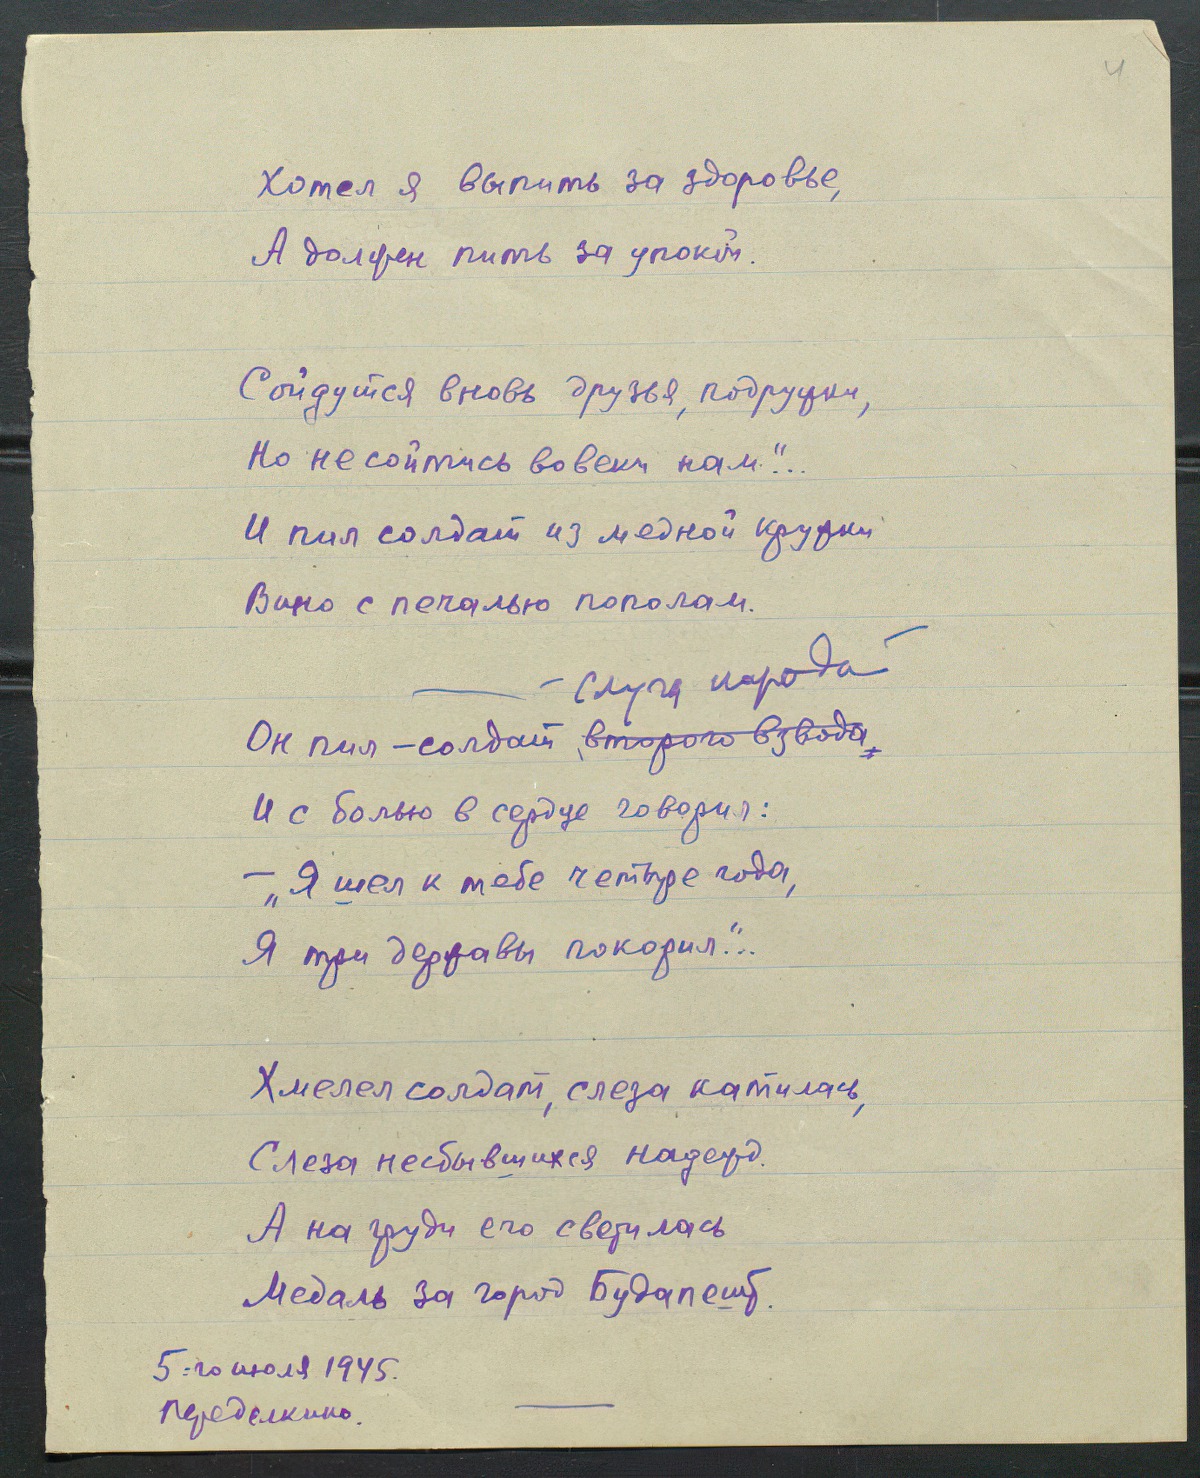 4
Хотел я выпить за здоровье,
А должен пить за упокой.
Сойдутся вновь друзья, подружки,
Но не сойтись вовеки нам"...
И пил солдат из медной кружки
Вино с печалью пополам.
— слуга народа —
Он пил – солдат второго взвода,
И с болью в сердце говорил:
– „Я шел к тебе четыре года,
Я три державы покорил"...
Хмелел солдат, слеза катилась,
Слеза несбывшихся надежд.
А на груди его светилась
Медаль за город Будапешт.
5-го июля 1945.
Переделкино.